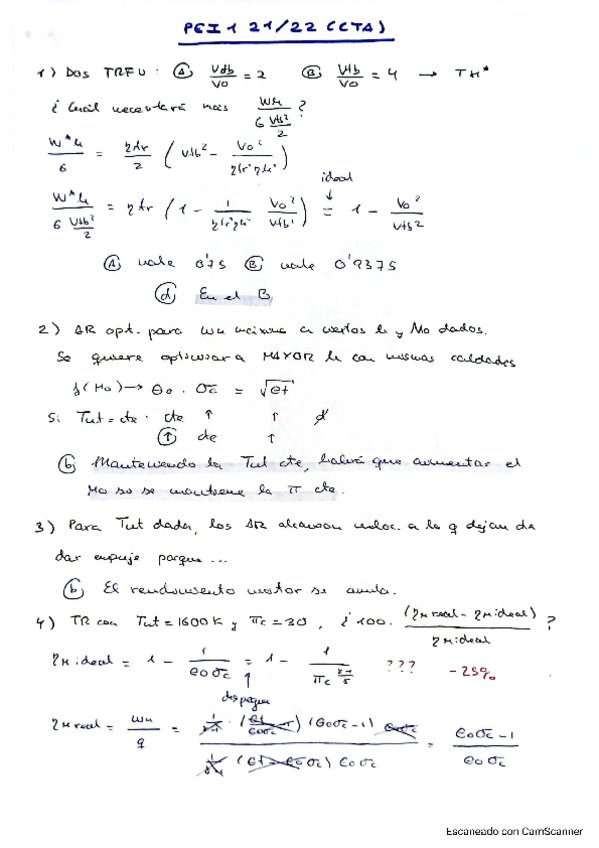 PEI 1 21/22 (CTA)
1) Dos TRFU: Ⓐ Vtb/V0 = 2 Ⓑ Vtb/V0 = 4 →
¿Cuál necesitará más Wu/(G Vtb²/2)?
Wu/G = ( Vtb² - V0²/ )
Wu/(G Vtb²/2) = ( 1 - 1/ V0²/Vtb² ) = 1 - V0²/Vtb²
ideal
Ⓐ vale 0'75 Ⓑ vale 0'9375
ⓓ En el B
2) AR opt. para Wu a ciertos h y M0 dados.
Se quiere optimizar a MAYOR h con mismas calidades
f(M0) → θ0 · σc = √θt
Si Tut = cte: cte ↑ ↑
↑ cte ↑
ⓑ Manteniendo la Tut cte, habrá que aumentar el
M0 si se mantiene la π cte.
3) Para Tut dada, los AR alcanzan veloc. a la q dejan de
dar empuje porque ...
ⓑ El rendimiento motor se anula.
4) TR con Tut = 1600 K y πc = 30, ¿ 100. (ηM real - ηM ideal)/ηM ideal ?
ηM ideal = 1 - 1/(θ0 σc) = 1 - 1/πc ??? -25%
despegue
ηM real = Wu/q = (θ0σc - 1) / θ0σc = (θ0σc - 1)/(θ0 σc)
Escaneado con CamScanner